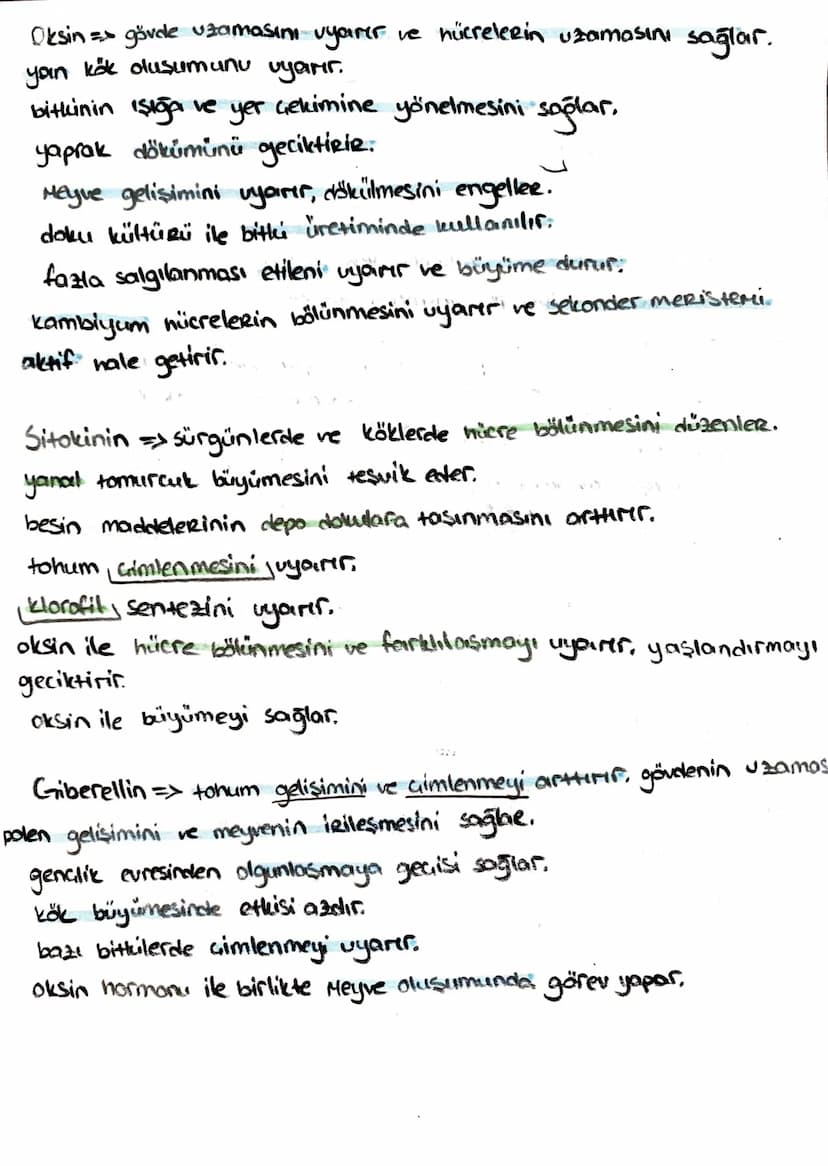 Oksin => gövde uzamasını uyarır ve hücrelerin uzamasını sağlar.
yan kök oluşumunu uyarır.
bitkinin ışığa ve yer çekimine yönelmesini sağlar.
yaprak dökümünü geciktirir.
Meyve gelişimini uyarır, dökülmesini engeller.
doku kültürü ile bitki üretiminde kullanılır.
fazla salgılanması etileni uyarır ve büyüme durur.
kambiyum hücrelerin bölünmesini uyarır ve sekonder meristemi
aktif hale getirir.
Sitokinin => sürgünlerde ve köklerde hücre bölünmesini düzenler.
yanal tomurcuk büyümesini teşvik eder.
besin maddelerinin depo dokulara taşınmasını arttırır.
tohum çimlenmesini uyarır.
klorofil sentezini uyarır.
oksin ile hücre bölünmesini ve farklılaşmayı uyarır, yaşlandırmayı
geciktirir.
oksin ile büyümeyi sağlar.
Giberellin => tohum gelişimini ve çimlenmeyi arttırır, gövdenin uzamas
polen gelişimini ve meyvenin irileşmesini sağlar.
gençlik evresinden olgunlaşmaya geçişi sağlar.
kök büyümesinde etkisi azdır.
bazı bitkilerde çimlenmeyi uyarır.
oksin hormonu ile birlikte Meyve oluşumunda görev yapar.